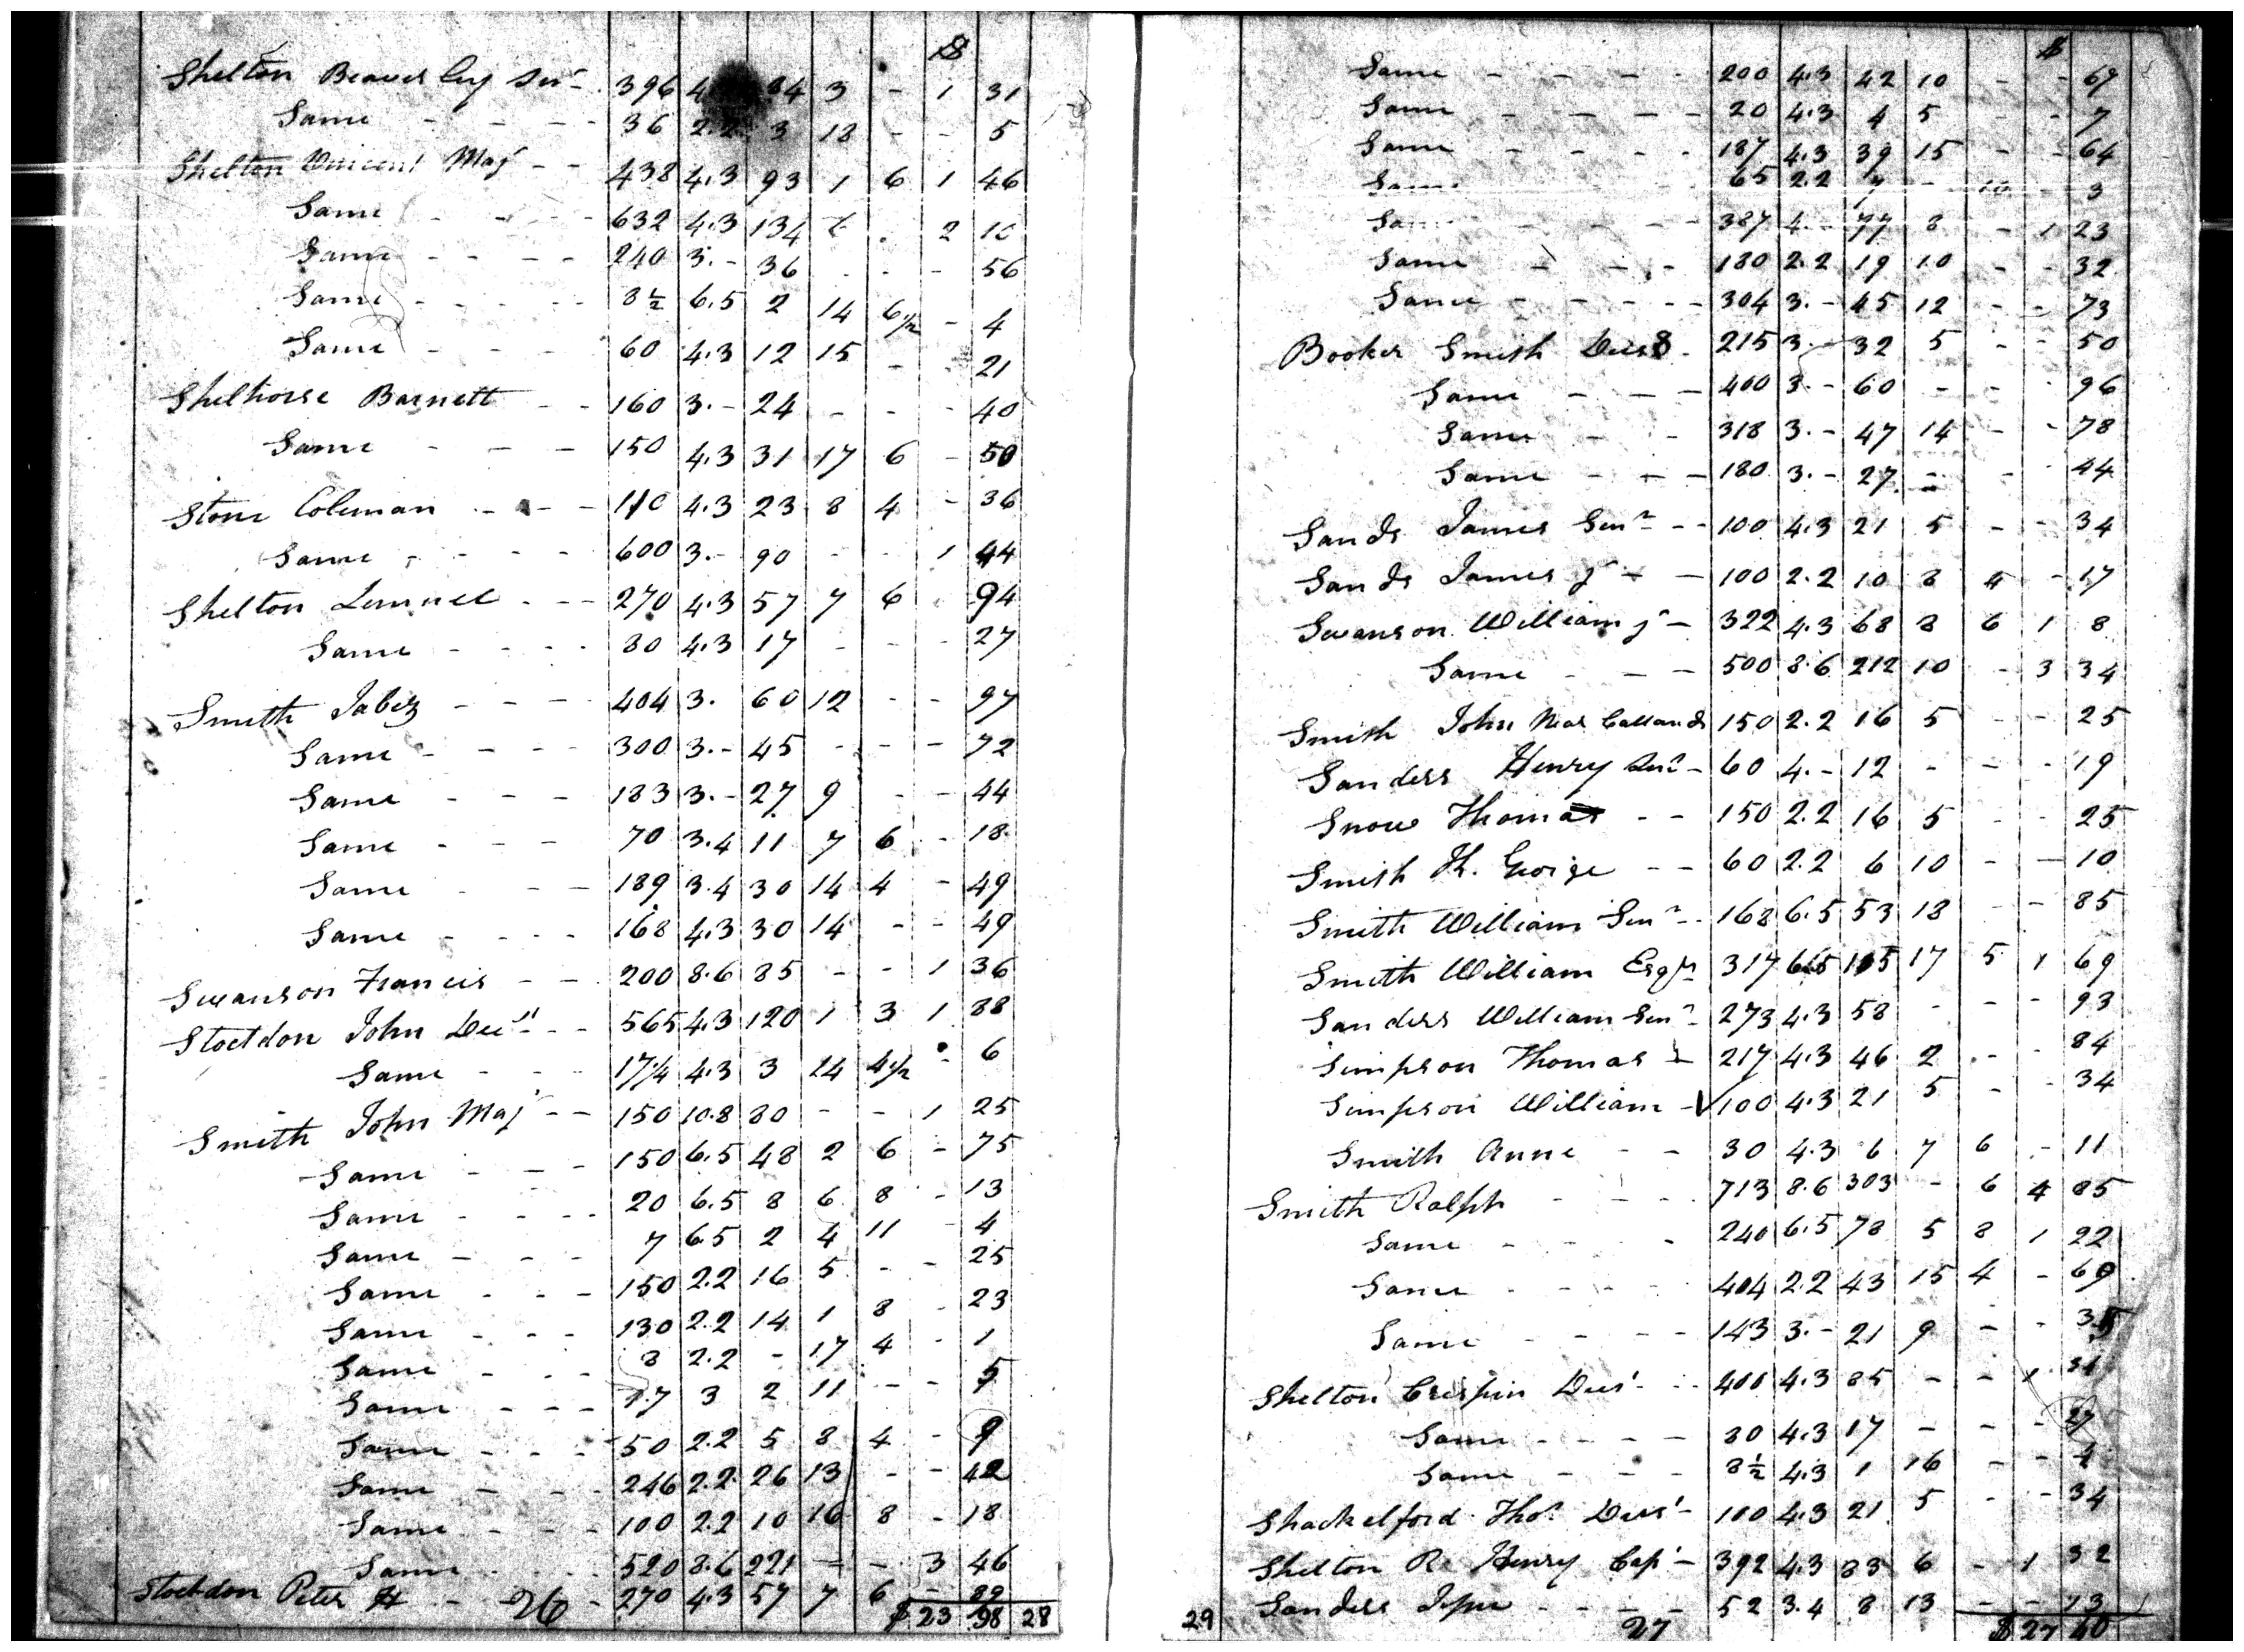 $
Shelton Beaver Cry Senr - 396 4 84 3 - 1 31
Same - - - - 36 2.2 3 18 - - 5
Shelton Vincent Majr - - 438 4.3 93 1 6 1 46
Same - - - - 632 4.3 134 - 2 10
Same - - - - 240 3.- 36 - - - 56
Same - - - - 8½ 6.5 2 14 6½ - 4
Same - - - 60 4.3 12 15 - - 21
Shelhorse Barnett - - 160 3.- 24 - - - 40
Same - - - 150 4.3 31 17 6 - 50
Stone Coleman - - - 110 4.3 23 8 4 - 36
Same - - - - 600 3.- 90 - - 1 44
Shelton Lemuel - - - 270 4.3 57 7 6 - 94
Same - - - - 80 4.3 17 - - - 27
Smith Jabez - - - - 404 3. 60 12 - - 97
Same - - - - 300 3.- 45 - - - 72
Same - - - 183 3.- 27 9 - - 44
Same - - - 70 3.4 11 7 6 - 18
Same - - - 189 3.4 30 14 4 - 49
Same - - - - 168 4.3 30 14 - - 49
Swanson Francis - - 200 8.6 85 - - 1 36
Stockdon John Decd - - 565 4.3 120 1 3 1 88
Same - - - 17¼ 4.3 3 14 4½ - 6
Smith John Majr - - 150 10.8 80 - - 1 25
Same - - - 150 6.5 48 2 6 - 75
Same - - - - 20 6.5 8 6 8 - 13
Same - - - 7 6.5 2 4 11 - 4
Same - - - 150 2.2 16 5 - - 25
Same - - - 130 2.2 14 1 8 - 23
Same - - - 8 2.2 - 17 4 - 1
Same - - - 17 3 2 11 - - 5
Same - - - 50 2.2 5 8 4 - 9
Same - - - 246 2.2 26 13 - - 42
Same - - - 100 2.2 10 16 8 - 18
Same - - - 520 8.6 221 - - 3 46
Stockdon Peter H - 26 - 270 4.3 57 7 6 - 89
$ 23 98 28
$
Same - - - - 200 4.3 42 10 - - 69
Same - - - - 20 4.3 4 5 - - 7
Same - - - - 187 4.3 39 15 - - 64
Same 65 2.2 7 - 10 - 3
Same - - - 387 4.- 77 8 - 1 23
Same - - - 180 2.2 19 10 - - 32
Same - - - - - 304 3.- 45 12 - - 73
Booker Smith Decd - 215 3.- 32 5 - - 50
Same - - - 400 3.- 60 - - - 96
Same - - 318 3.- 47 14 - - 78
Same - - - 180 3.- 27 - - - 44
Sands James Senr - - 100 4.3 21 5 - - 34
Sands James jr - - 100 2.2 10 8 4 - 17
Swanson William jr - 322 4.3 68 8 6 1 8
Same - - - 500 8.6 212 10 - 3 34
Smith John Near Callands 150 2.2 16 5 - - 25
Sanders Henry Senr - 60 4.- 12 - - - 19
Snow Thomas - - 150 2.2 16 5 - - 25
Smith H. George - - 60 2.2 6 10 - - 10
Smith William Senr - 168 6.5 53 18 - - 85
Smith William Esqr 317 6.5 105 17 5 1 69
Sanders William Senr - 273 4.3 58 - - - 93
Simpson Thomas - 217 4.3 46 2 - - 84
Simpson William - 100 4.3 21 5 - - 34
Smith Anne - - 30 4.3 6 7 6 - 11
Smith Ralph - - - 713 8.6 303 - 6 4 85
Same - - - - 240 6.5 78 5 8 1 22
Same - - - - 404 2.2 43 15 4 - 69
Same - - - - 143 3.- 21 9 - - 35
Shelton Crispin Decd - - 400 4.3 85 - - 1
Same - - - - 80 4.3 17 - - - 27
Same - - - 8½ 4.3 1 16 - - 4
Shackelford Thos. Decd - 100 4.3 21 5 - - 34
Shelton R. Henry Capt - 392 4.3 83 6 - 1 32
Sanders - - - - 52 3.4 8 13 - - 13
29 27 $ 27 60